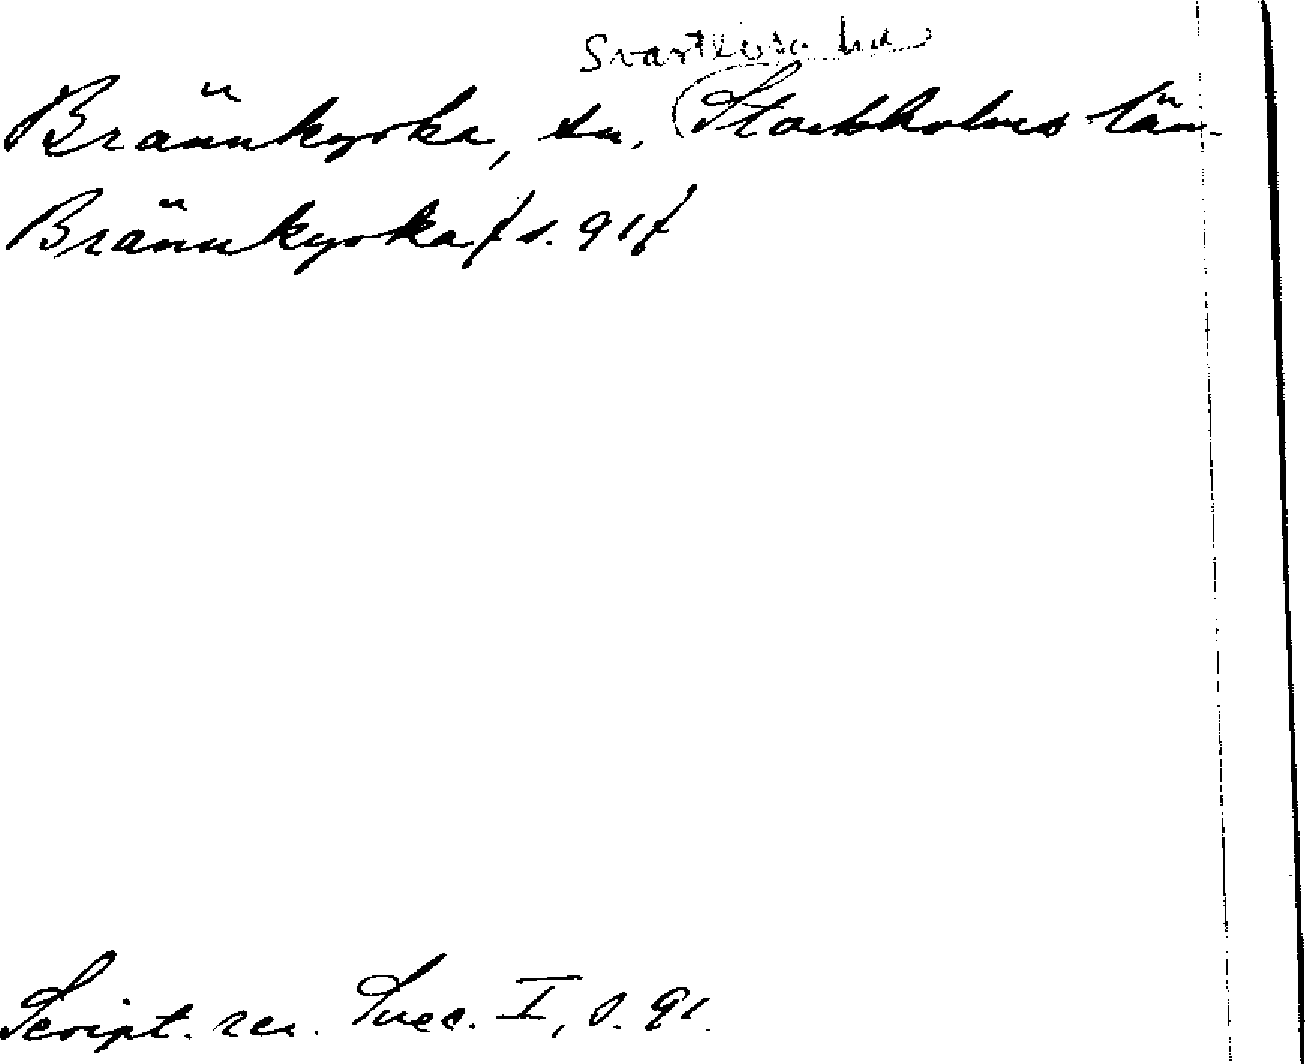 Svartlösa hd
Brännkyrka, sn. Stockholms län.
Brännkyrka /s. 91/
Script. rer. Suec. I, s. 91.